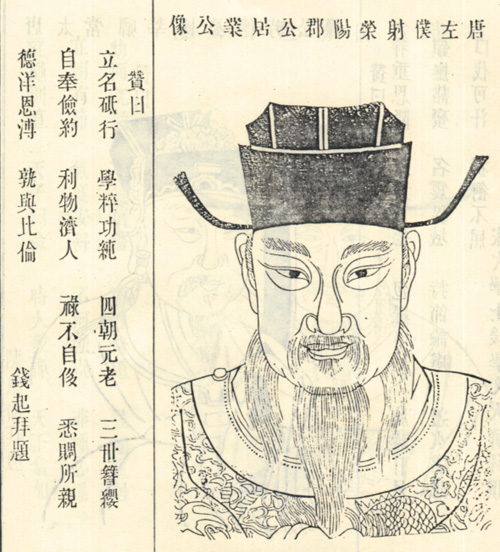 唐左僕射榮陽郡公居業公像
贊曰
立名砥行 學粹功純 四朝元老 三世簪纓
自奉儉約 利物濟人 祿不自後 悉賙所親
德洋恩溥 孰與比倫
錢起拜題